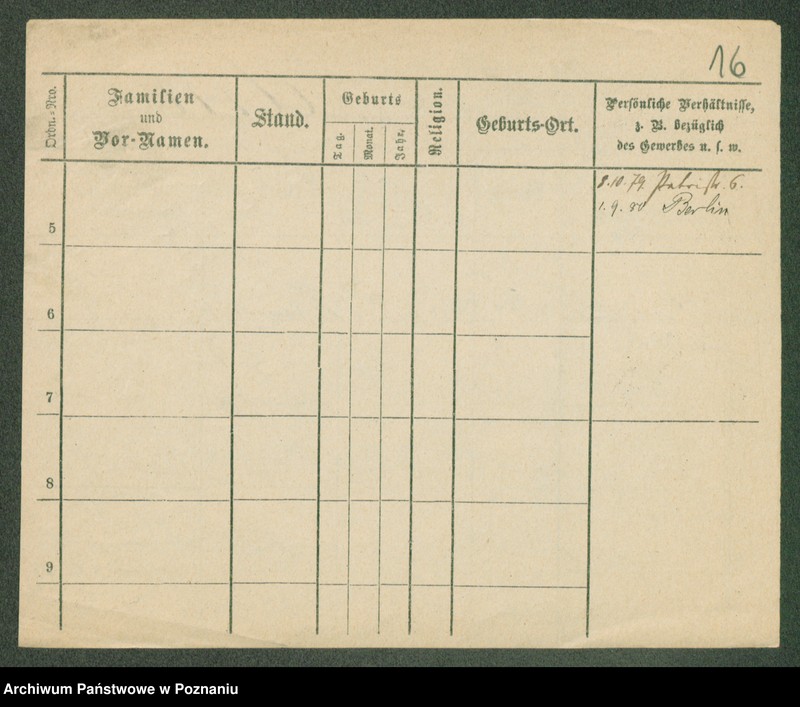 16
Ordn.-Nro.
Familien
und
Vor-Namen.
Stand.
Geburts
Tag.
Monat.
Jahr.
Religion.
Geburts-Ort.
Persönliche Verhältnisse,
z. B. bezüglich
des Gewerbes u. s. w.
8.10.79. 6.
1.9.80 Berlin
5
6
7
8
9
Archiwum Państwowe w Poznaniu